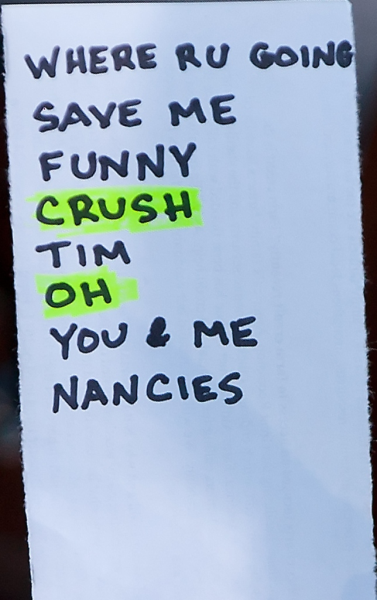 WHERE RU GOING
SAVE ME
FUNNY
CRUSH
TIM
OH
YOU & ME
NANCIES